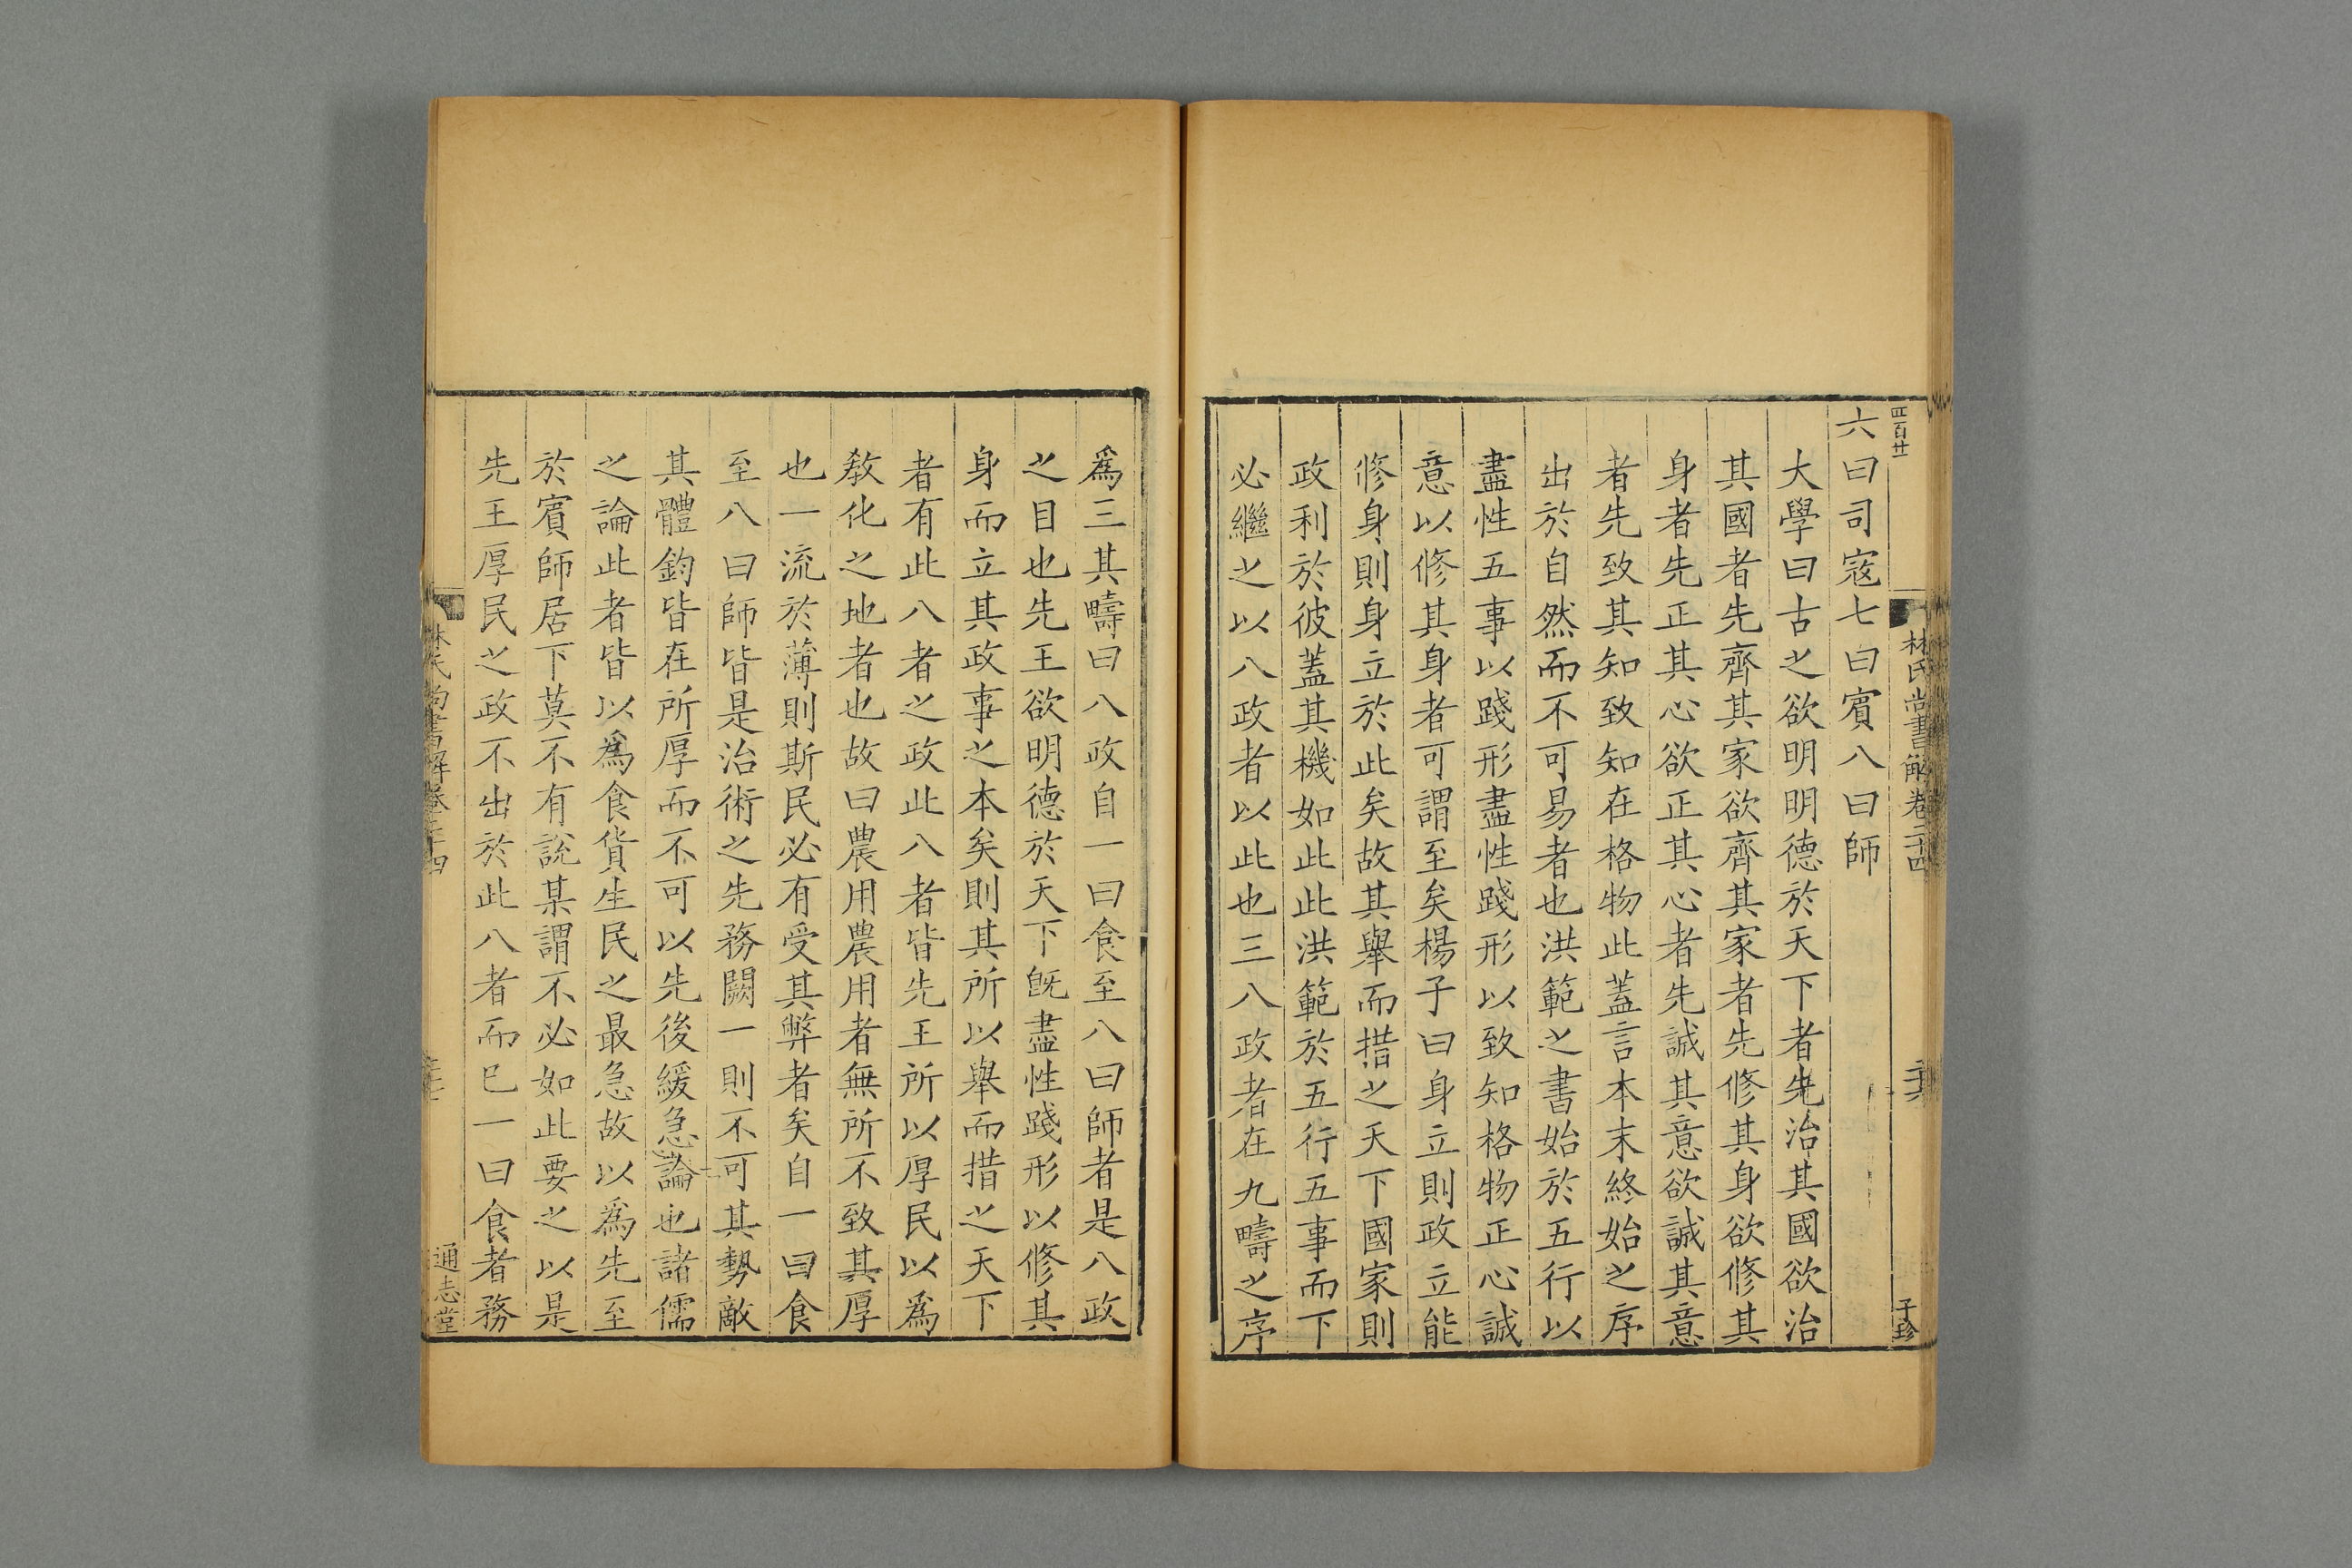 四百廿
林氏尚書解卷二十四
子珍
六曰司寇七曰賓八曰師
大學曰古之欲明明德於天下者先治其國欲治
其國者先齊其家欲齊其家者先修其身欲修其
身者先正其心欲正其心者先誠其意欲誠其意
者先致其知致知在格物此蓋言本末終始之序
出於自然而不可易者也洪範之書始於五行以
盡性五事以踐形盡性踐形以致知格物正心誠
意以修其身者可謂至矣楊子曰身立則政立能
修身則身立於此矣故其舉而措之天下國家則
政利於彼蓋其機如此此洪範於五行五事而下
必繼之以八政者以此也三八政者在九疇之序
爲三其疇曰八政自一曰食至八曰師者是八政
之目也先王欲明德於天下旣盡性踐形以修其
身而立其政事之本矣則其所以舉而措之天下
者有此八者之政此八者皆先王所以厚民以爲
敎化之地者也故曰農用農用者無所不致其厚
也一流於薄則斯民必有受其弊者矣自一曰食
至八曰師皆是治術之先務闕一則不可其勢敵
其體鈞皆在所厚而不可以先後緩急論也諸儒
之論此者皆以爲食貨生民之最急故以爲先至
於賓師居下莫不有說某謂不必如此要之以是
先王厚民之政不出於此八者而已一曰食者務
林氏尚書解卷二十四
通志堂